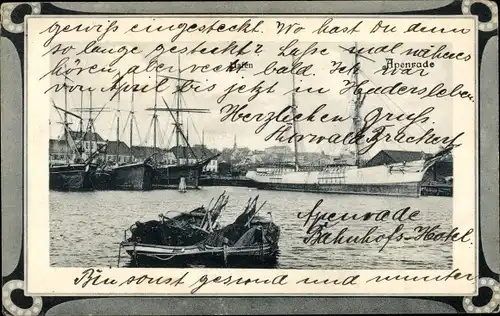 gewiß eingesteckt. Wo hast Du denn
so lange gesteckt? Laße mal näheres
hören, aber recht bald. Ich war
Hafen Apenrade
von April bis jetzt in Hadersleben
Herzlichen Gruß.
Thorwald
Apenrade
Bahnhofs-Hotel.
Bin sonst gesund und munter